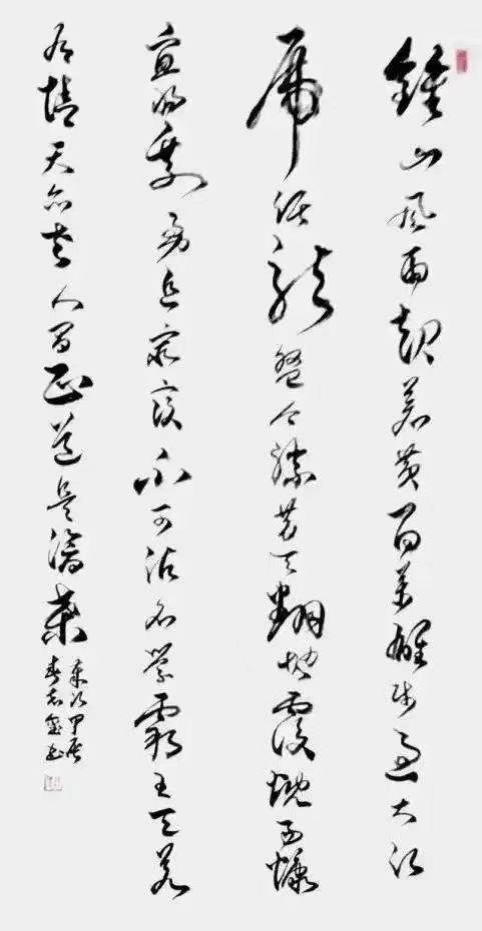 鍾山風雨起蒼黃百萬雄師過大江
虎踞龍盤今勝昔天翻地覆慨而慷
宜將剩勇追窮寇不可沽名學霸王天若
有情天亦老人間正道是滄桑
歲次甲辰